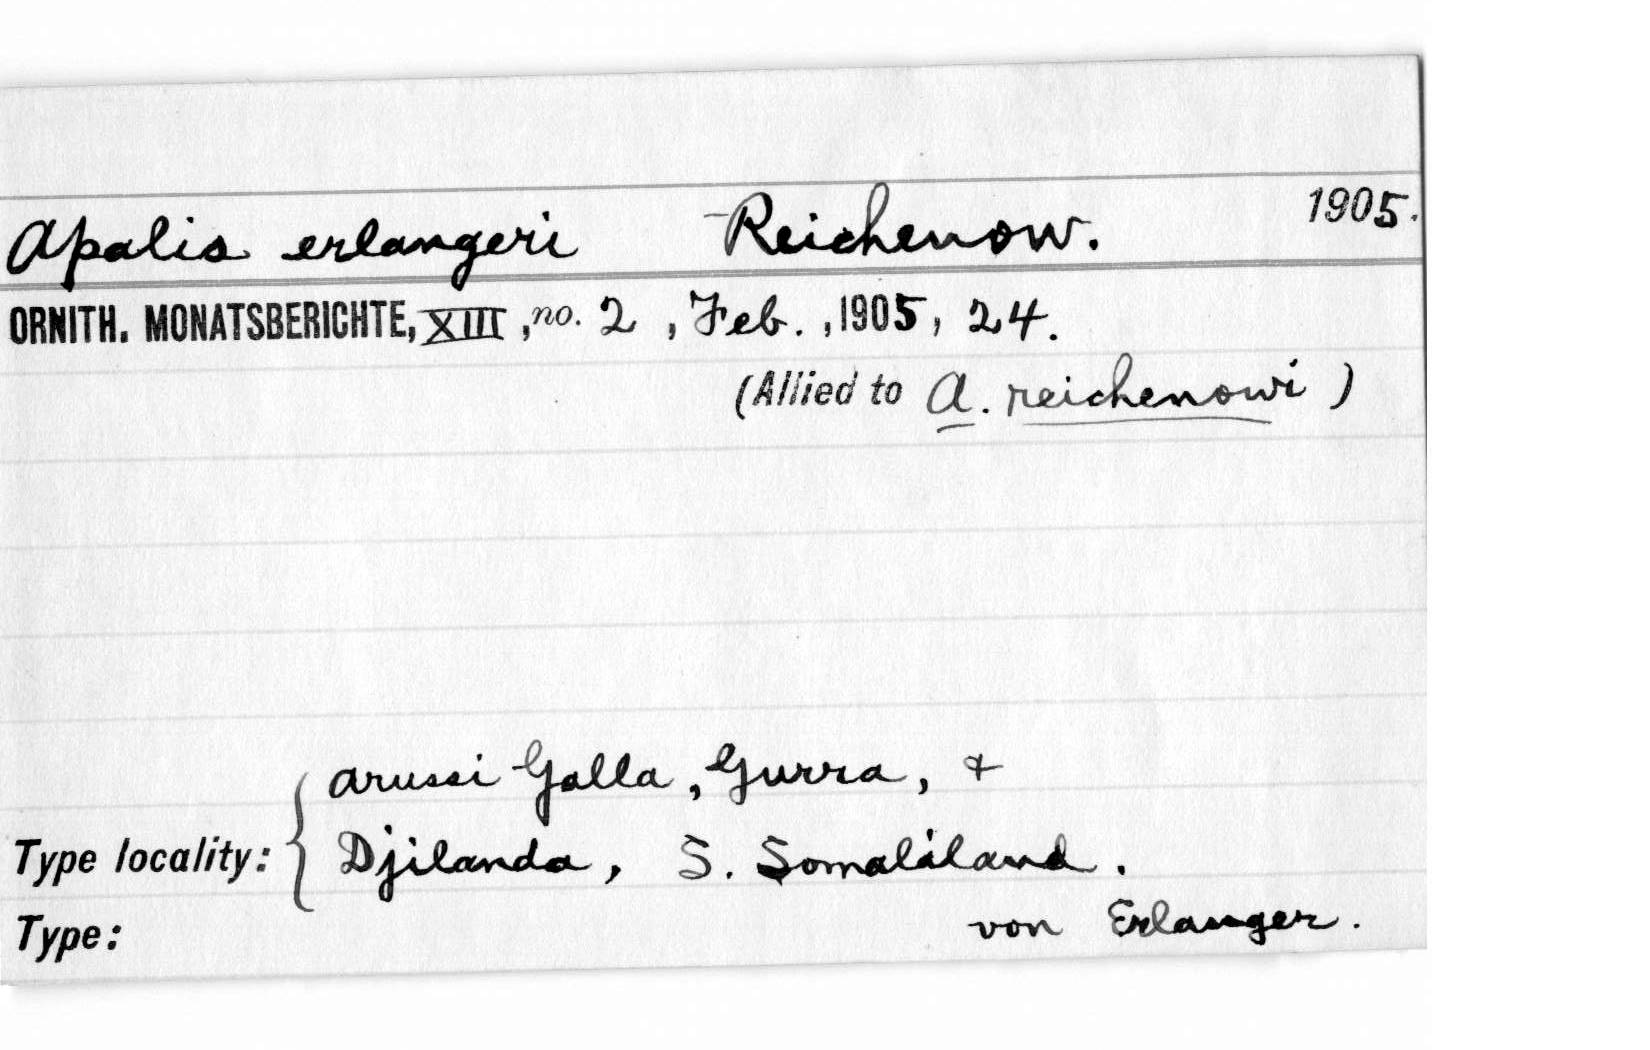 Apalis erlangeri Reichenow. 1905.
ORNITH. MONATSBERICHTE, XIII, no. 2, Feb., 1905, 24.
(Allied to A. reichenowi)
Arussi Galla, Gurra, +
Type locality: { Djilanda, S. Somaliland.
Type: von Erlanger.